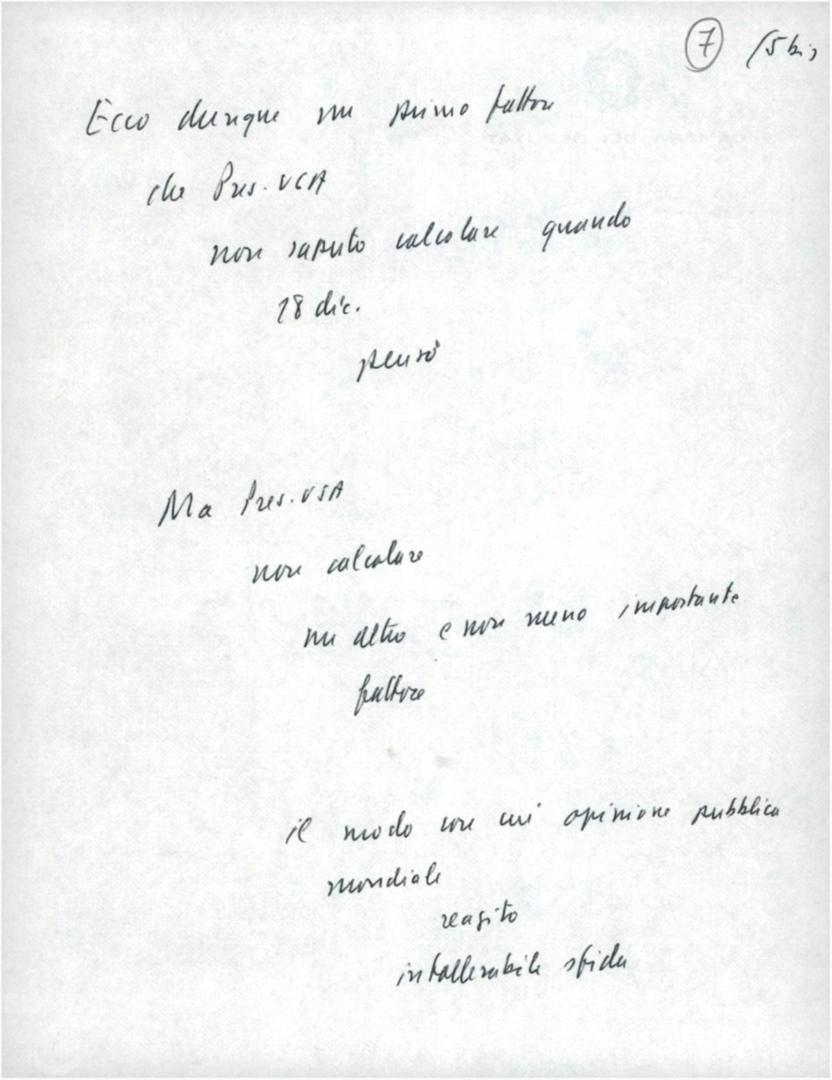 7 (5 bis
Ecco dunque un primo fattore
che Pres. USA
non saputo calcolare quando
18 dic.
pensò
Ma Pres. USA
non calcolare
un altro e non meno importante
fattore
il modo con cui opinione pubblica
mondiale
reagito
intollerabile sfida